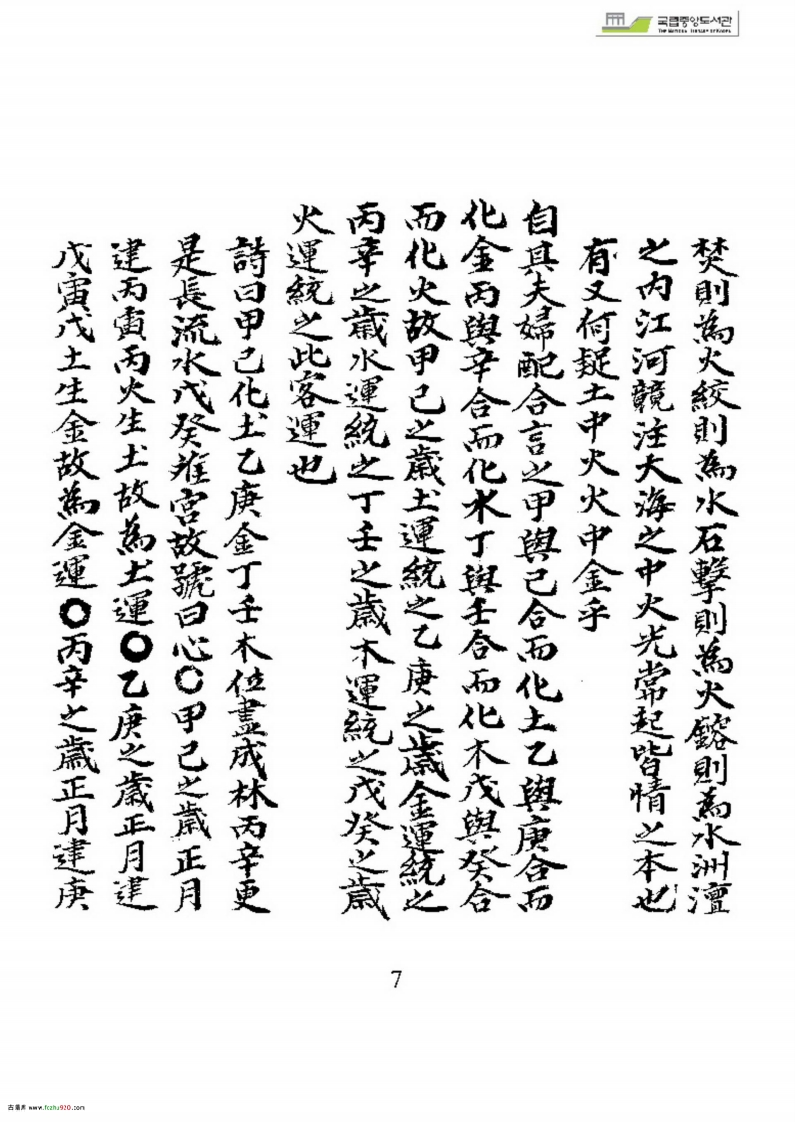 국립중앙도서관
THE NATIONAL LIBRARY OF KOREA
焚則為火絞則為水石擊則為火鎔則為水洲澶
之内江河競注大海之中火光常起皆情之本也
有又何疑土中火火中金乎
自其夫婦配合言之甲與己合而化土乙與庚合而
化金丙與辛合而化水丁與壬合而化木戊與癸合
而化火故甲己之歲土運統之乙庚之歲金運統之
丙辛之歲水運統之丁壬之歲木運統之戊癸之歲
火運統之此客運也
詩曰甲己化土乙庚金丁壬木位盡成林丙辛更
是長流水戊癸離宮故號曰心〇甲己之歲正月
建丙寅丙火生土故為土運〇乙庚之歲正月建
戊寅戊土生金故為金運〇丙辛之歲正月建庚
7
www.fozhu920.com